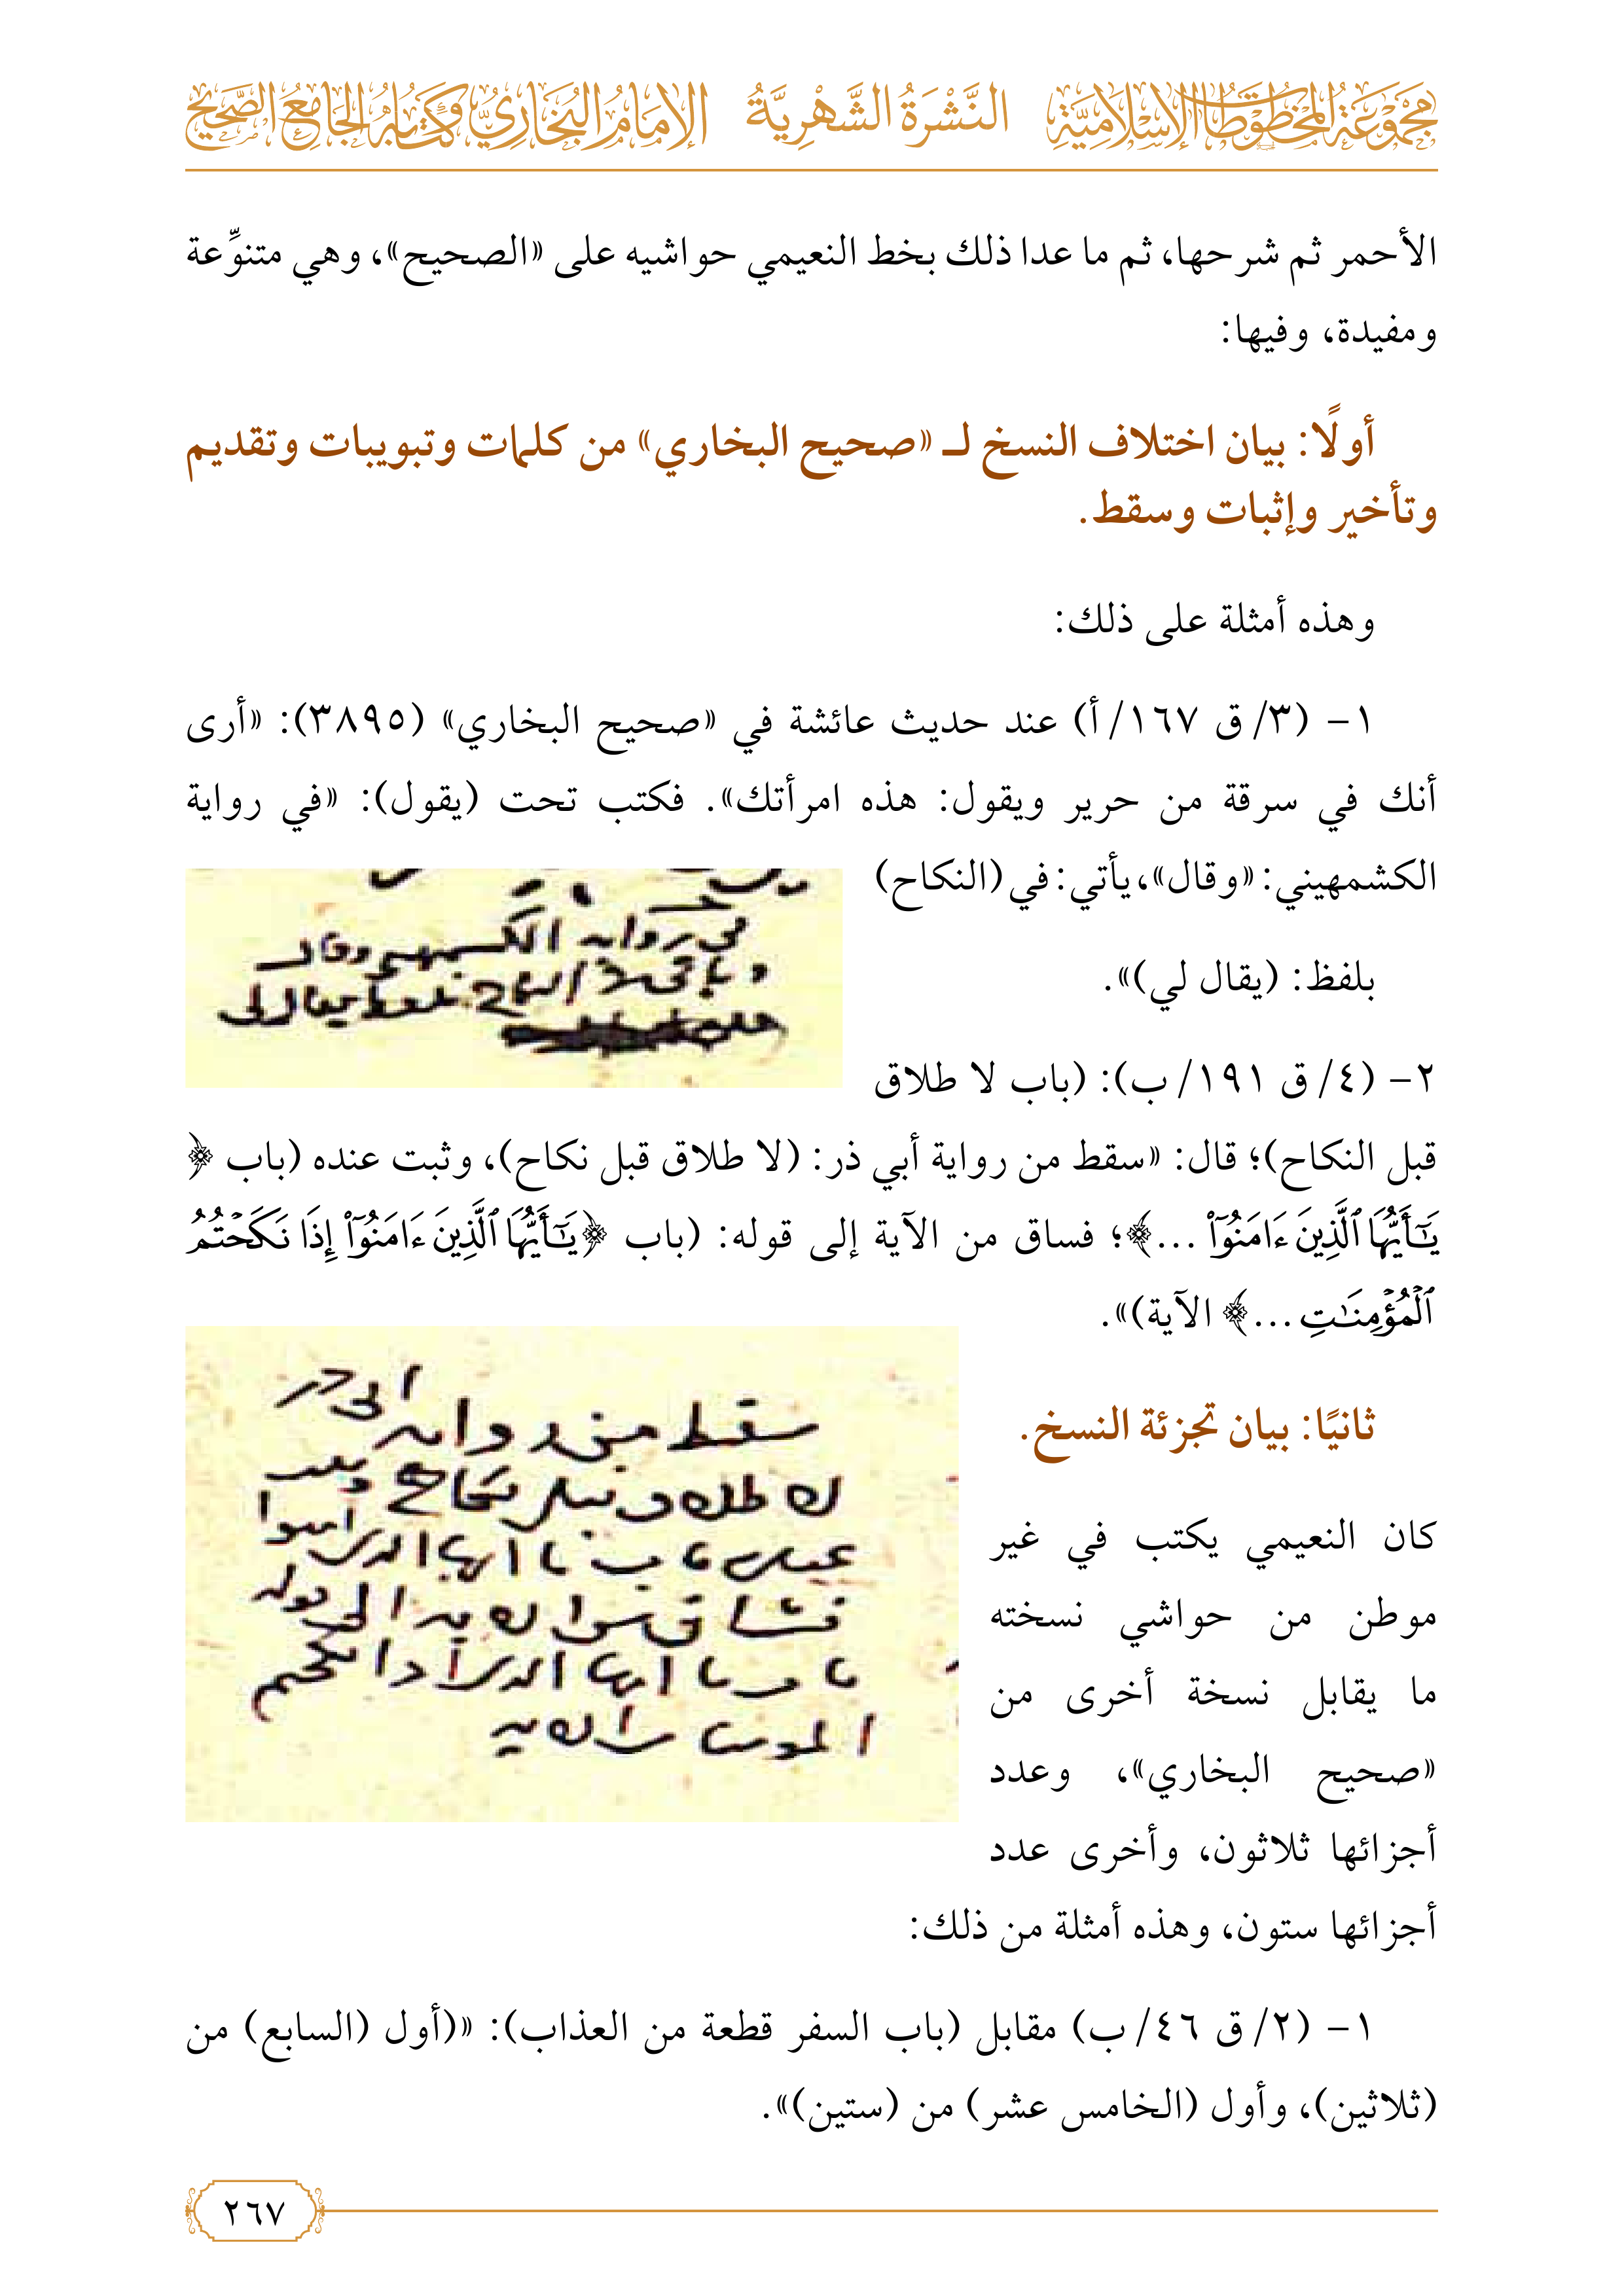 مجموعة المخطوطات الإسلامية النَّشْرَةُ الشَّهْرِيَّةُ الإمام البخاري وكتابه الجامع الصحيح
الأحمر ثم شرحها، ثم ما عدا ذلك بخط النعيمي حواشيه على «الصحيح»، وهي متنوِّعة
ومفيدة، وفيها:
أولًا: بيان اختلاف النسخ لـ «صحيح البخاري» من كلمات وتبويبات وتقديم
وتأخير وإثبات وسقط.
وهذه أمثلة على ذلك:
١- (٣/ ق ١٦٧/ أ) عند حديث عائشة في «صحيح البخاري» (٣٨٩٥): «أرى
أنك في سرقة من حرير ويقول: هذه امرأتك». فكتب تحت (يقول): «في رواية
الكشمهيني: «وقال»، يأتي: في (النكاح)
بلفظ: (يقال لي)».
في رواية الكشميهني وقال
ويأتي في النكاح بلفظ يقال لي
٢- (٤/ ق ١٩١/ ب): (باب لا طلاق
قبل النكاح)؛ قال: «سقط من رواية أبي ذر: (لا طلاق قبل نكاح)، وثبت عنده (باب ﴿
يَٰٓأَيُّهَا ٱلَّذِينَ ءَامَنُوٓاْ ...﴾؛ فساق من الآية إلى قوله: (باب ﴿يَٰٓأَيُّهَا ٱلَّذِينَ ءَامَنُوٓاْ إِذَا نَكَحۡتُمُ
ٱلۡمُؤۡمِنَٰتِ ...﴾ الآية)».
سقط من رواية ابي ذر
لا طلاق قبل نكاح وثبت
عنده باب يا ايها الذين امنوا
فساق من الاية الى قوله
باب يا ايها الذين اذا نكحتم
المومنات الاية
ثانيًا: بيان تجزئة النسخ.
كان النعيمي يكتب في غير
موطن من حواشي نسخته
ما يقابل نسخة أخرى من
«صحيح البخاري»، وعدد
أجزائها ثلاثون، وأخرى عدد
أجزائها ستون، وهذه أمثلة من ذلك:
١- (٢/ ق ٤٦/ ب) مقابل (باب السفر قطعة من العذاب): «(أول (السابع) من
(ثلاثين)، وأول (الخامس عشر) من (ستين)».
٢٦٧